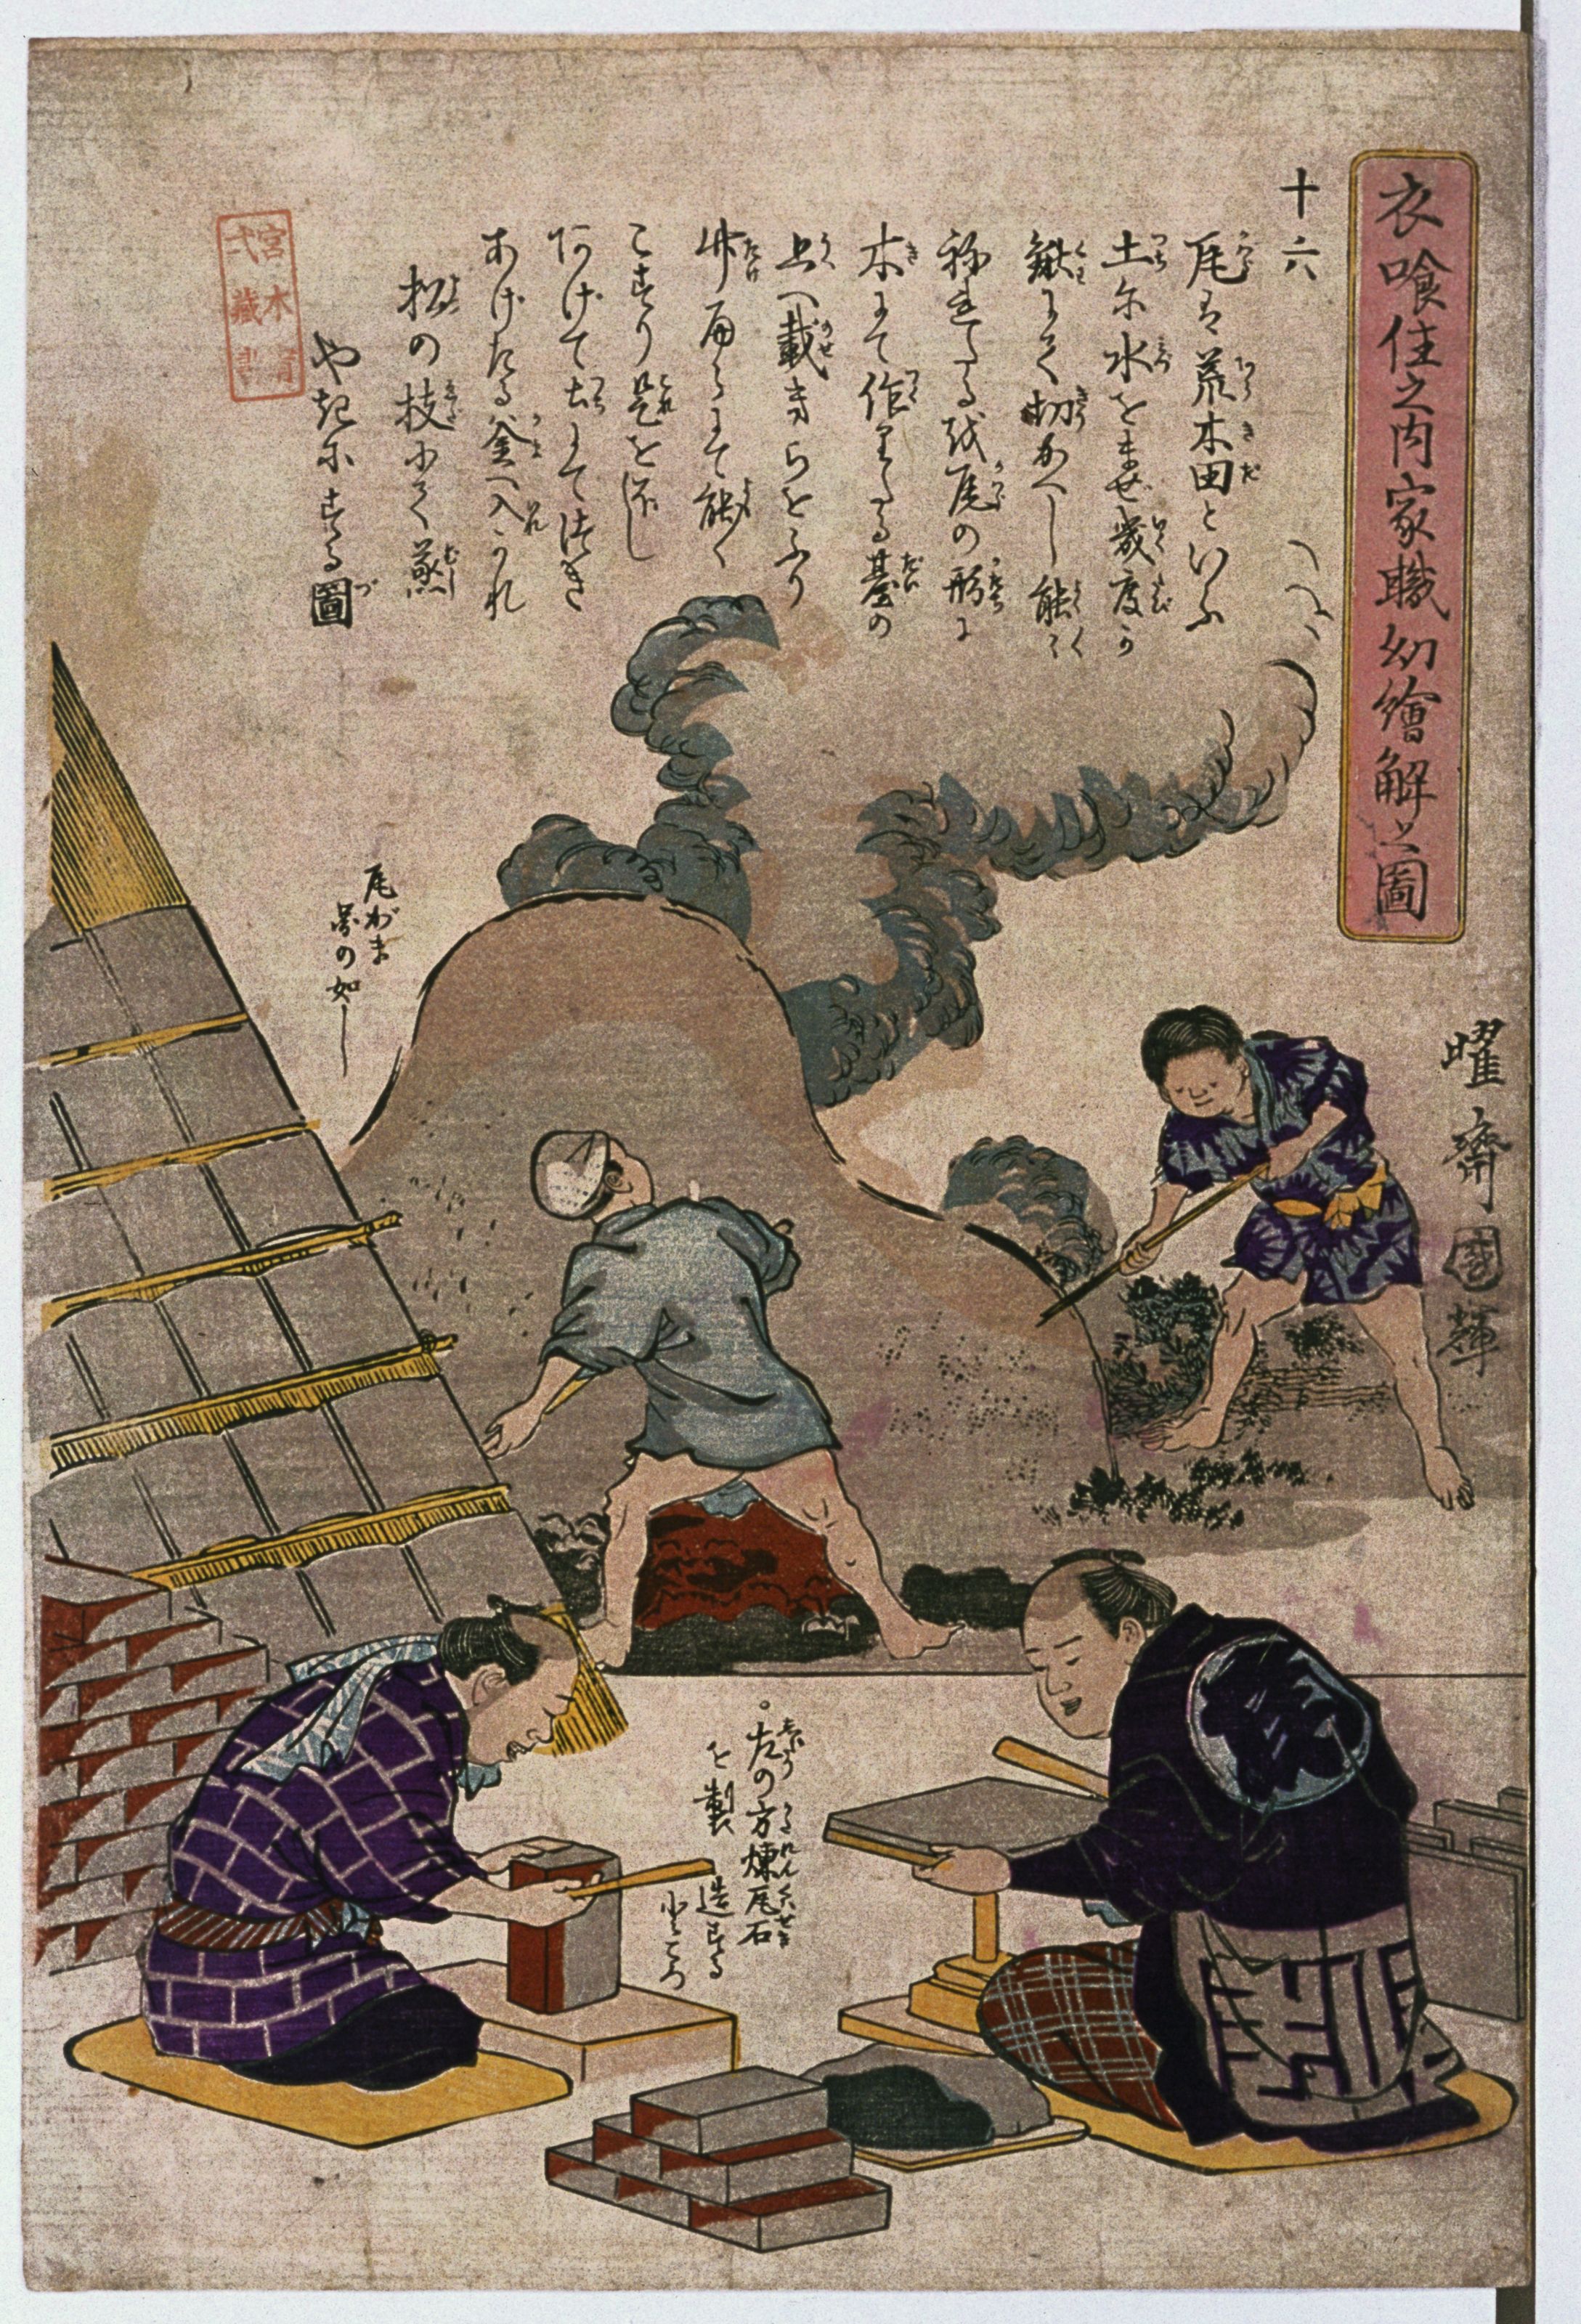 衣喰住之内家職幼繪解之圖
十六
瓦は荒木田といふ
土尓水をまぜ幾度か
鍬にて切かへし能々
祢れたる或瓦の形に
木にて作りたる臺の
上へ載きらをふり
竹扁らにて能く
こすり是を保し
あげて土にて築き
あげたる釜へ入かれ
松の枝尓て蒸
やき尓する圖
瓦がま
圖の如し
曜齋國輝
左の方煉瓦石
を製造する
ところ
宮木
弍藏書